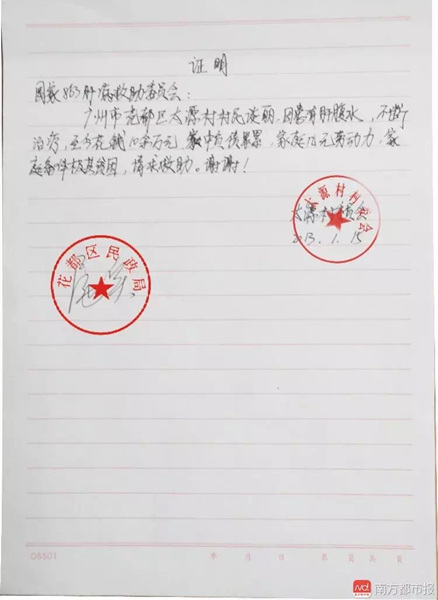 证明
国家863肝病救助委员会：
广州市花都区太源村村民谈丽，因患有肝腹水，不断
治疗，至今花钱10余万元，家中负债累累，家庭已无劳动力，家
庭条件极其贫困，请求救助。谢谢！
太源村村委会
太源村村委会
2013.1.15
花都区民政局
08501
年 月 日 第 页 共 页
南方都市报